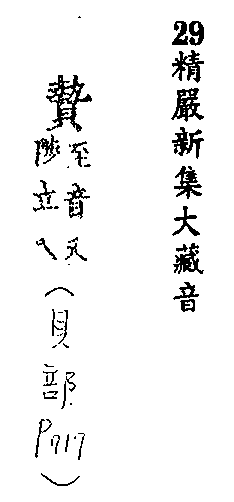 29精嚴新集大藏音
贄
至音又
陟立
(貝部P717)